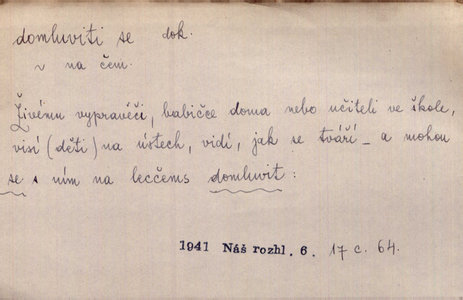 domluviti se dok.
~ na čem.
Živému vypravěči, babičce doma nebo učiteli ve škole,
visí (děti) na ústech, vidí, jak se tváří – a mohou
se s ním na lecčems domluvit :
1941 Náš rozhl. 6. 17 c. 64.